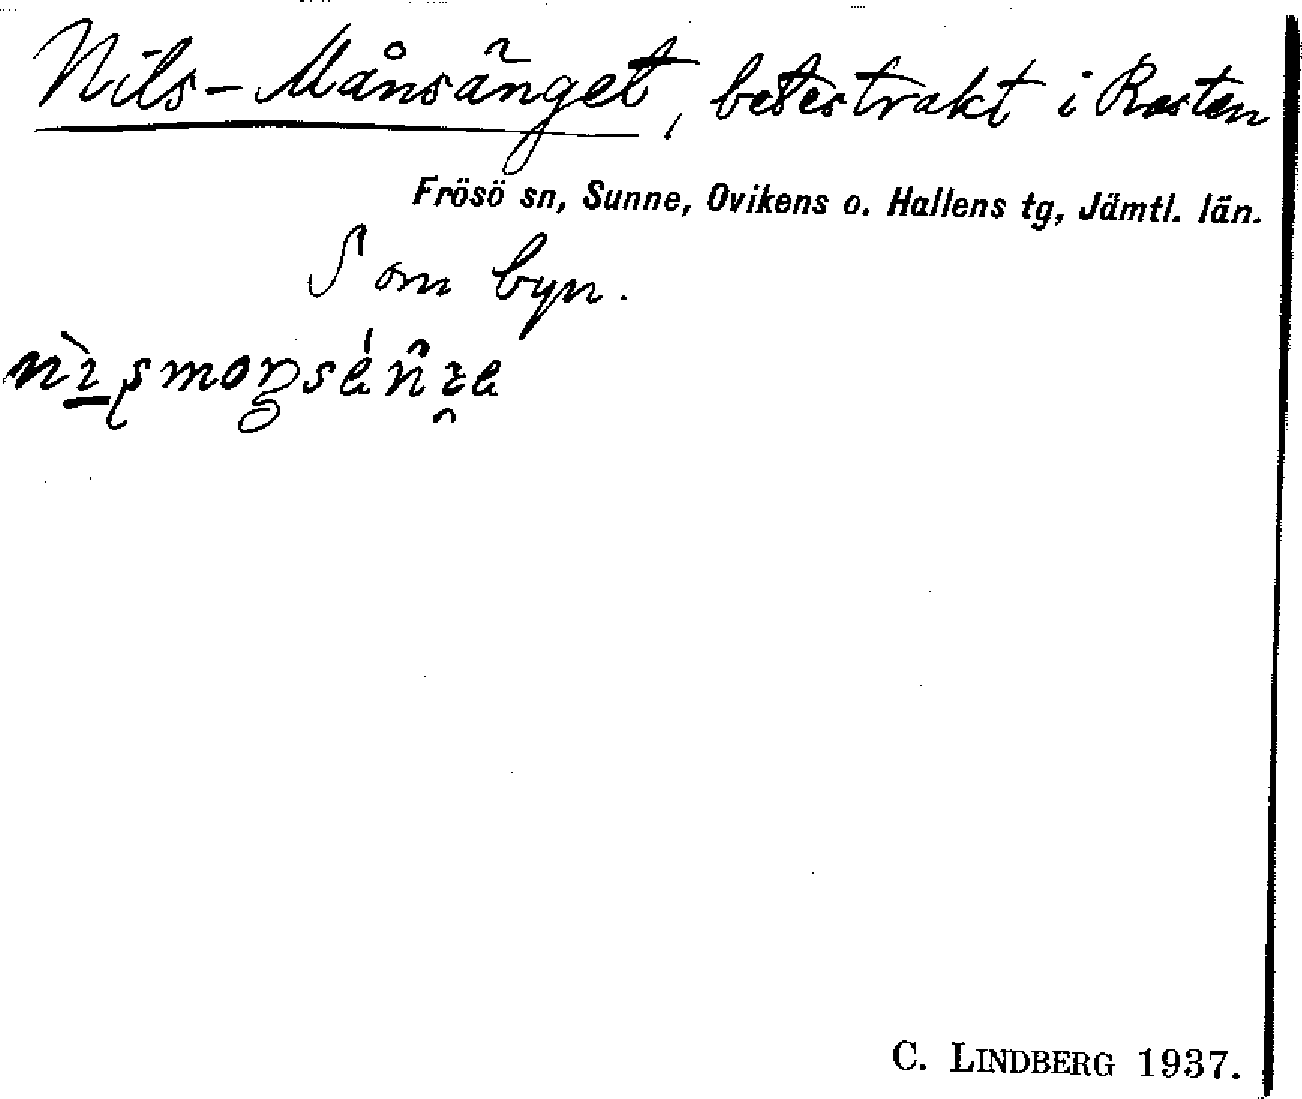 Nils-Månsänget, betestrakt i Rosten
Frösö sn, Sunne, Ovikens o. Hallens tg, Jämtl. län.
S om byn.
C. LINDBERG 1937.